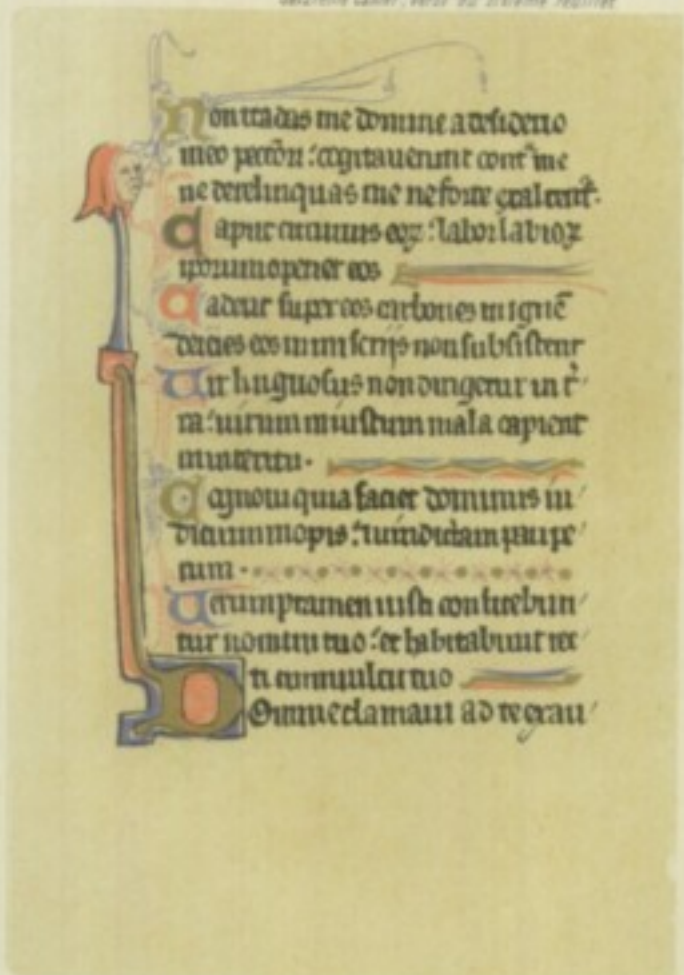 Non tradas me domine a desiderio
meo peccatori: cogitauerunt cont me
ne derelinquas me ne forte exaltent.
Caput circuitus eoꝝ: labor labioꝝ
iporum operiet eos
Cadent super eos carbones in ignē
deicies eos in miserijs non subsistent
Uir linguosus non dirigetur in t̄
ra: uirum iniustum mala capient
in interitu.
Cognoui quia faciet dominus iu
dicium inopis: uindictam paupe
rum.
Uerumptamen iusti confitebun
tur nomini tuo: et habitabunt rec
ti cum uultu tuo
Domine clamaui ad te exau